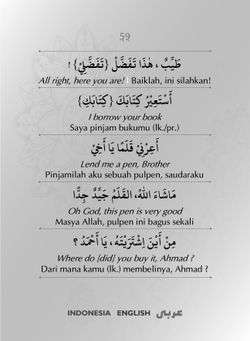 59
طَيِّبٌ، هٰذَا تَفَضَّلْ {تَفَضَّلِيْ} !
All right, here you are! Baiklah, ini silahkan!
أَسْتَعِيْرُ كِتَابَكَ {كِتَابَكِ}
I borrow your book
Saya pinjam bukumu (lk./pr.)
أَعِرْنِيْ قَلَمًا يَا أَخِيْ
Lend me a pen, Brother
Pinjamilah aku sebuah pulpen, saudaraku
مَاشَاءَ اللهُ، القَلَمُ جَيِّدٌ جِدًّا
Oh God, this pen is very good
Masya Allah, pulpen ini bagus sekali
مِنْ أَيْنَ اِشْتَرَيْتَهُ، يَا أَحْمَدُ ؟
Where do {did} you buy it, Ahmad ?
Dari mana kamu (lk.) membelinya, Ahmad ?
INDONESIA ENGLISH عربي